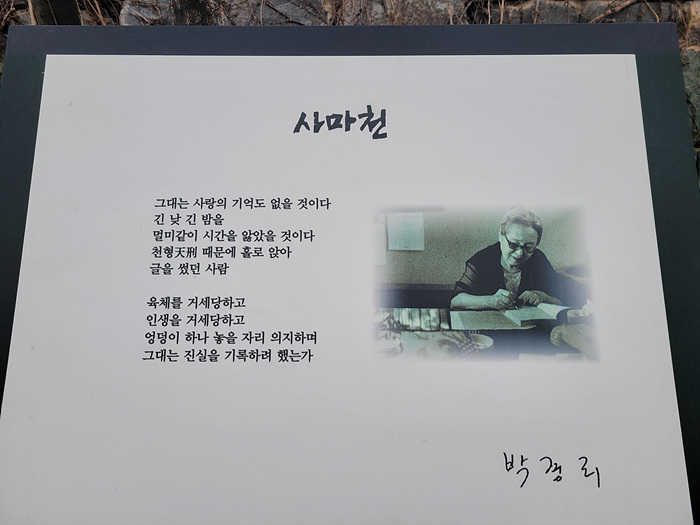 사마천
그대는 사랑의 기억도 없을 것이다
긴 낮 긴 밤을
멀미같이 시간을 앓았을 것이다
천형天刑 때문에 홀로 앉아
글을 썼던 사람
육체를 거세당하고
인생을 거세당하고
엉덩이 하나 놓을 자리 의지하며
그대는 진실을 기록하려 했는가
박경리